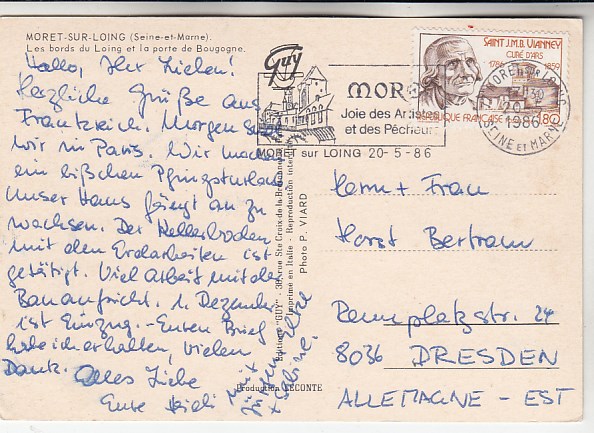 MORET-SUR-LOING (Seine-et-Marne).
Les bords du Loing et la porte de Bougogne.
Hallo, Ihr Lieben!
Herzliche Grüße aus
Frankreich. Morgen sind
wir in Paris. Wir machen
ein bißchen Pfingsturlaub
Unser Haus fängt an zu
wachsen. Der Kellerboden
mit den Erdarbeiten ist
getätigt. Viel Arbeit mit der
Bauaufsicht. 1. Dezember
ist Einzug. - Euren Brief
habe ich erhalten, vielen
Dank. Alles Liebe
Eure
mit
+ Sabine.
Guy
MORET
Joie des Artistes
et des Pêcheurs
MORET sur LOING 20-5-86
SAINT J.M.B. VIANNEY
CURÉ D'ARS
1786 1859
RÉPUBLIQUE FRANÇAISE 1,80
MORET SUR LOING
20-5
1986
SEINE et MARNE
Editions "GUY" - 36, rue Ste Croix de la Bretonnerie
Imprimé en Italie - Reproduction interdite
Photo P. VIARD
Production LECONTE
Herrn + Frau
Horst Bertram
Rennplatzstr. 24
8036 DRESDEN
ALLEMAGNE - EST